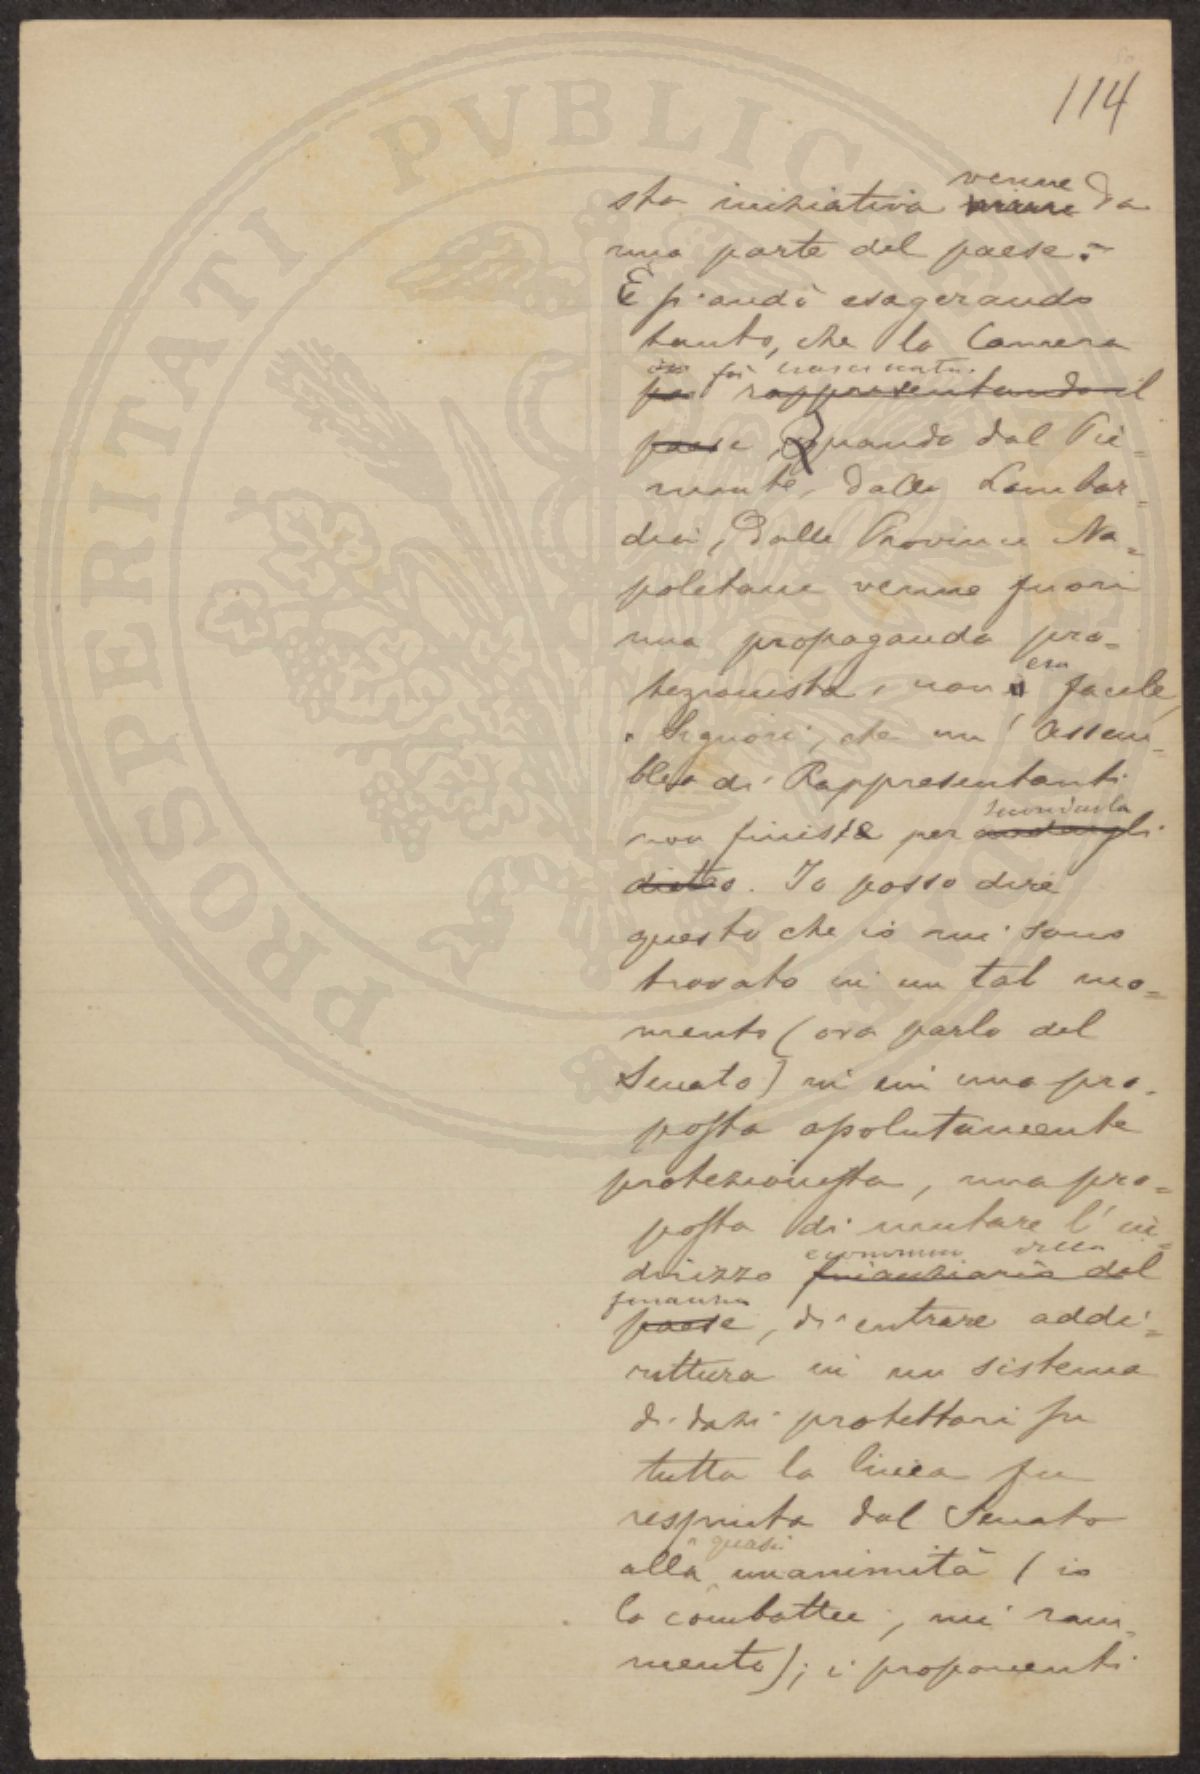 114
sta iniziativa venne da
una parte del paese.
E si andò esagerando
tanto, che la Camera
ne fu trascinata.
rappresentando il
paese quando dal Pie=
monte, dalla Lombar=
dia, dalle Provincie Na=
poletane venne fuori
una propaganda pro=
tezionista, non era facile,
o Signori, che un' Assem=
blea di Rappresentanti
non finisse per secondarla
andargli
dietro. Io posso dire
questo che io mi sono
trovato in un tal mo=
mento (ora parlo del
Senato) in cui una pro=
posta assolutamente
protezionista, una pro=
posta di mutare l'in=
dirizzo economico della
finanziario del
finanza
paese, di entrare addi=
rittura in un sistema
di dazi protettori su
tutta la linea fu
respinta dal Senato
alla quasi unanimità (io
la combattei, mi ram=
mento); i proponenti
PROSPERITATI PVBLICAE